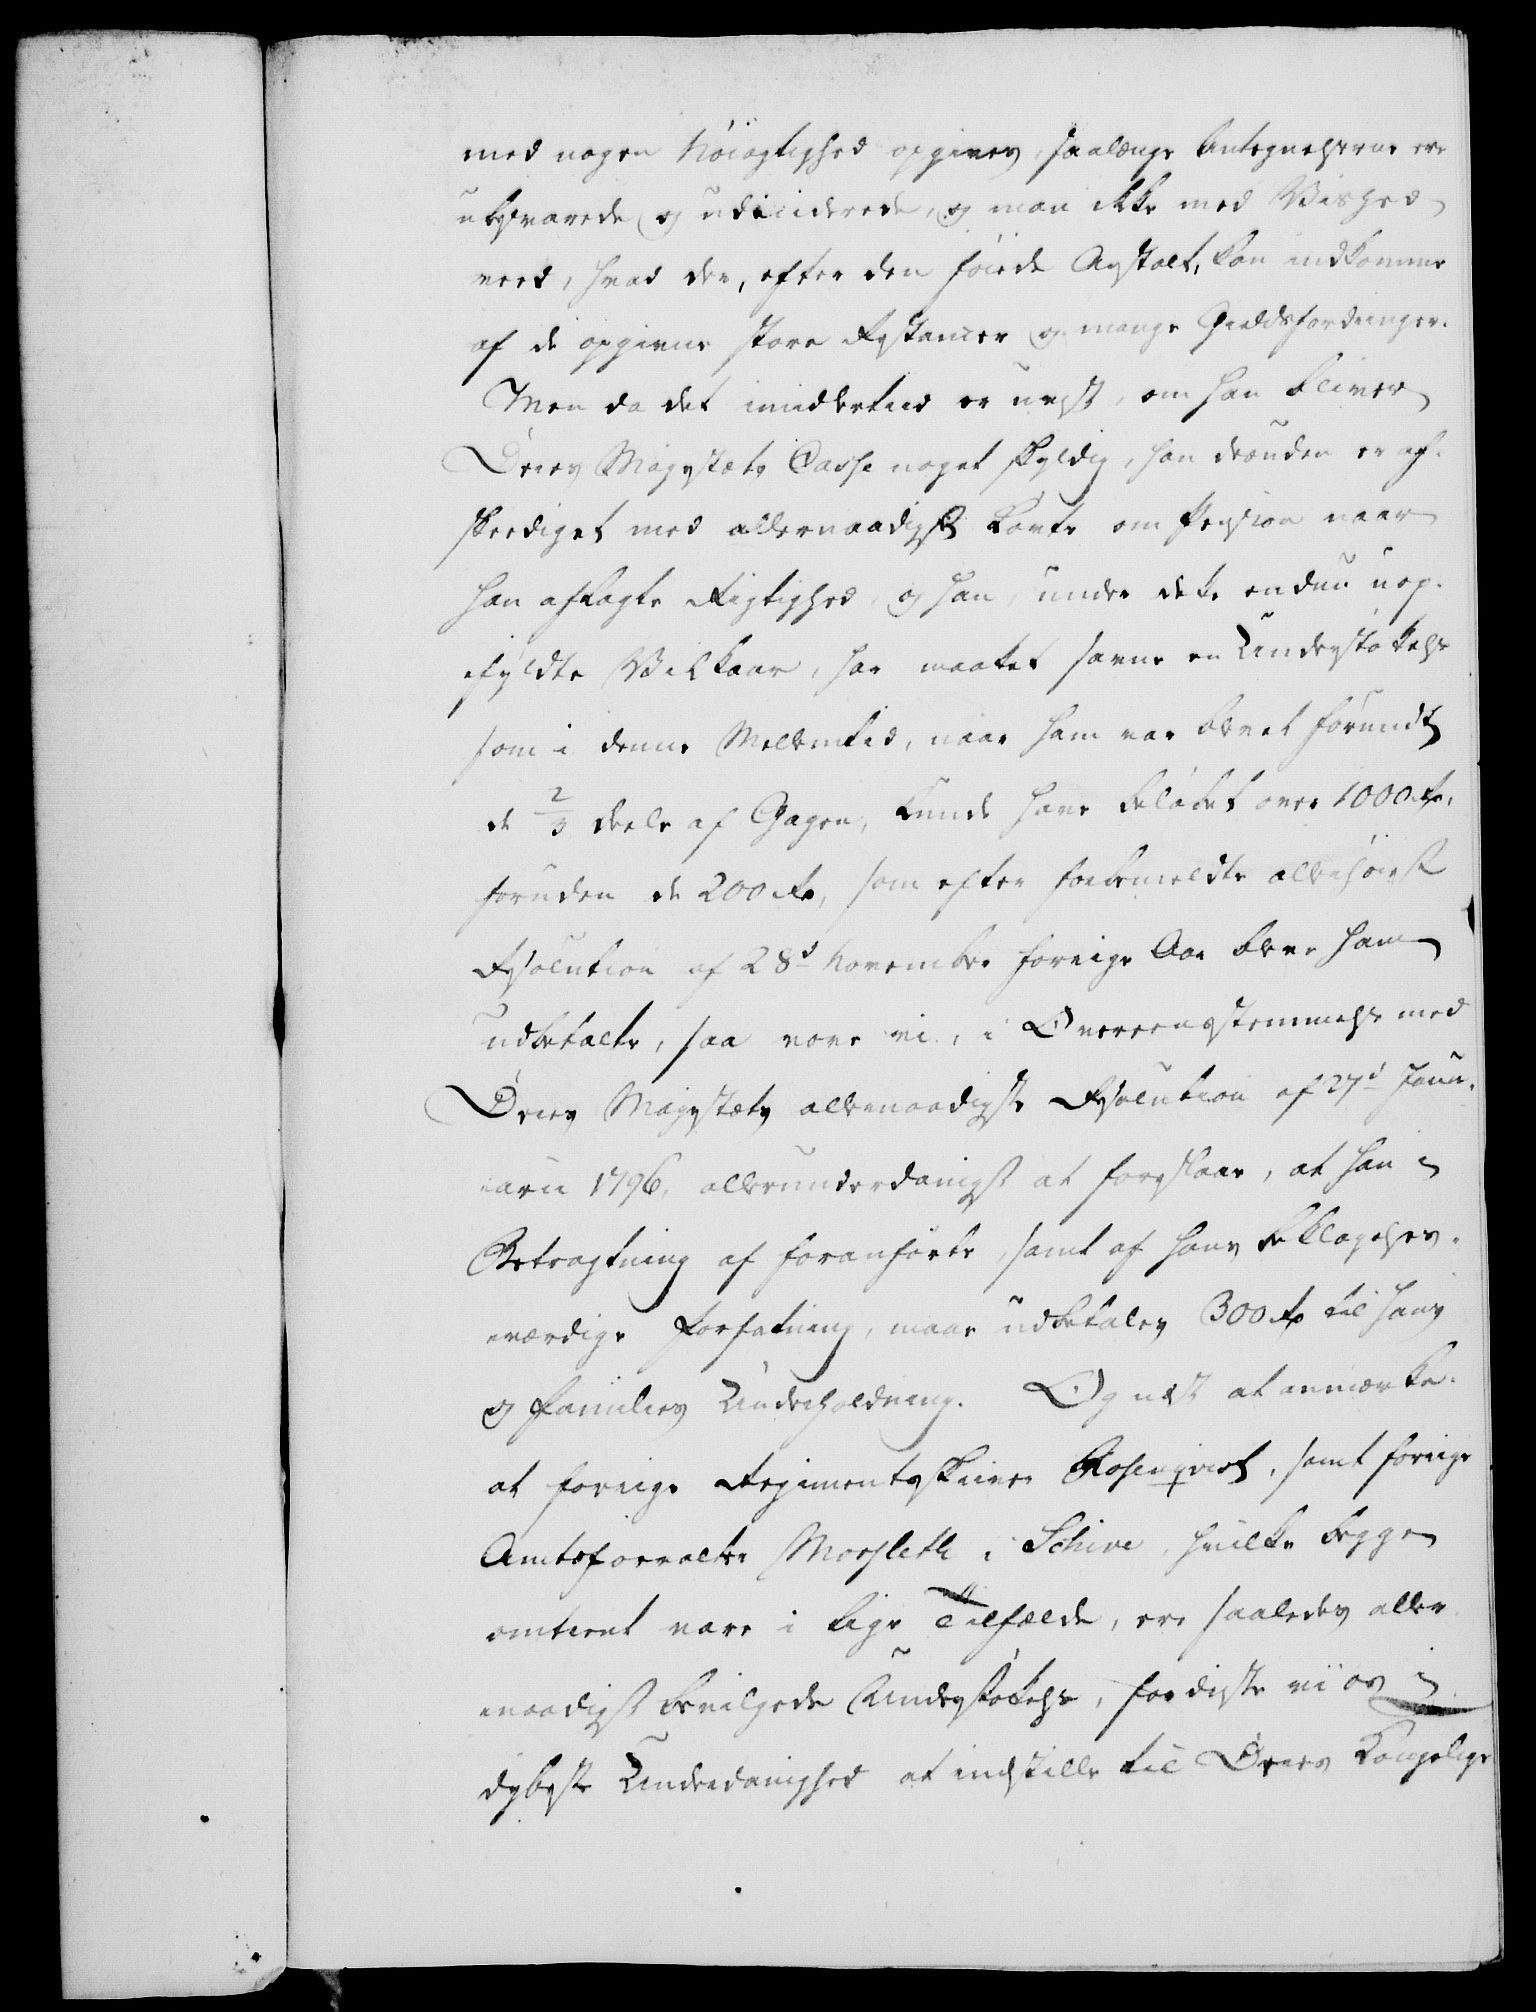 med nogen Nöiagtighed opgives, saalænge Antegnelserne ere
ubesvarede og udeciderede, og man ikke med Vished
veed, hvad der, efter den föiede Anstalt, kan indkomme
af de opgivne store Restancer og mange Gieldsfordringer.
Men da det imidlertid er uvist, om han bliver
Deres Majestæts Casse noget skyldig, han desuden er af-
skediget med allernaadigst Löfte om Pension naar
han aflagte Rigtighed, og han, under dette endnu uop-
fyldte Vilkaar, har maattet savne en Understöttelse
som i denne Mellemtid, naar ham var blevet forundt
de 2/3 deele af Gagen, kunde have belöbet over 1000 Rd,
foruden de 200 Rd, som efter forbemeldte allerhöieste
Resolution af 28d November forrige Aar bleve ham
udbetalte, saa vove vi, i Overeensstemmelse med
Deres Majestæts allernaadigste Resolution af 27d Janu-
arii 1796, allerunderdanigst at foreslaae, at han i
Betragtning af foranförte, samt af hans beklagelses-
værdige Forfatning, maae udbetales 300 Rd til hans
og Families Underholdning. Og næst at anmærke.
at forrige Regimentskriver Rosenqvist, samt forrige
Amtsforvalter Morsleth i Schive, hvilke begge
omtrent vare i lige Tilfælde, ere saaledes aller
naadigst bevilgede Understöttelse, fordriste vi os i
dybeste Underdanighed at indstille til Deres Kongelige